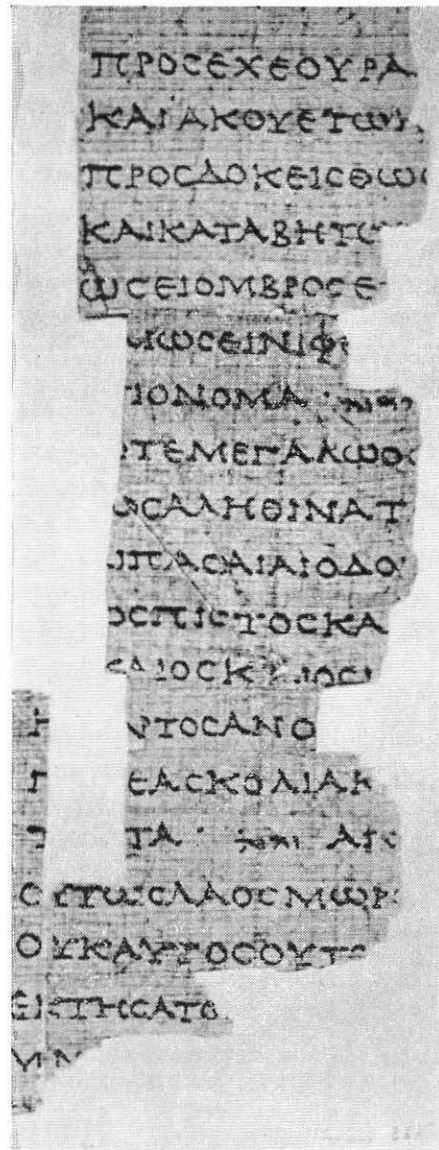 ΠΡΟϹΕΧΕΟΥΡΑ
ΚΑΙΑΚΟΥΕΤΩ
ΠΡΟϹΔΟΚΕΙϹΘΩ
ΚΑΙΚΑΤΑΒΗΤΩ
ΩϹΕΙΟΜΒΡΟϹΕ
ΩϹΕΙΝΙΦ
ΟΝΟΜΑ יהוה
ΤΕΜΕΓΑΛΩ
ϹΑΛΗΘΙΝΑΤ
ΠΑϹΑΙΑΙΟΔΟ
ΟϹΠΙϹΤΟϹΚΑ
ΑΙΟϹΚ ΙΟϹ
ΤΟϹΑΝΟ
ΕΑϹΚΟΛΙΑΚ
ΤΑ יהוה Α
ΟΥΤΩϹΛΑΟϹΜΩΡ
ΟΥΚΑΥΤΟϹΟΥΤΟ
ΕΚΤΗϹΑΤΟ